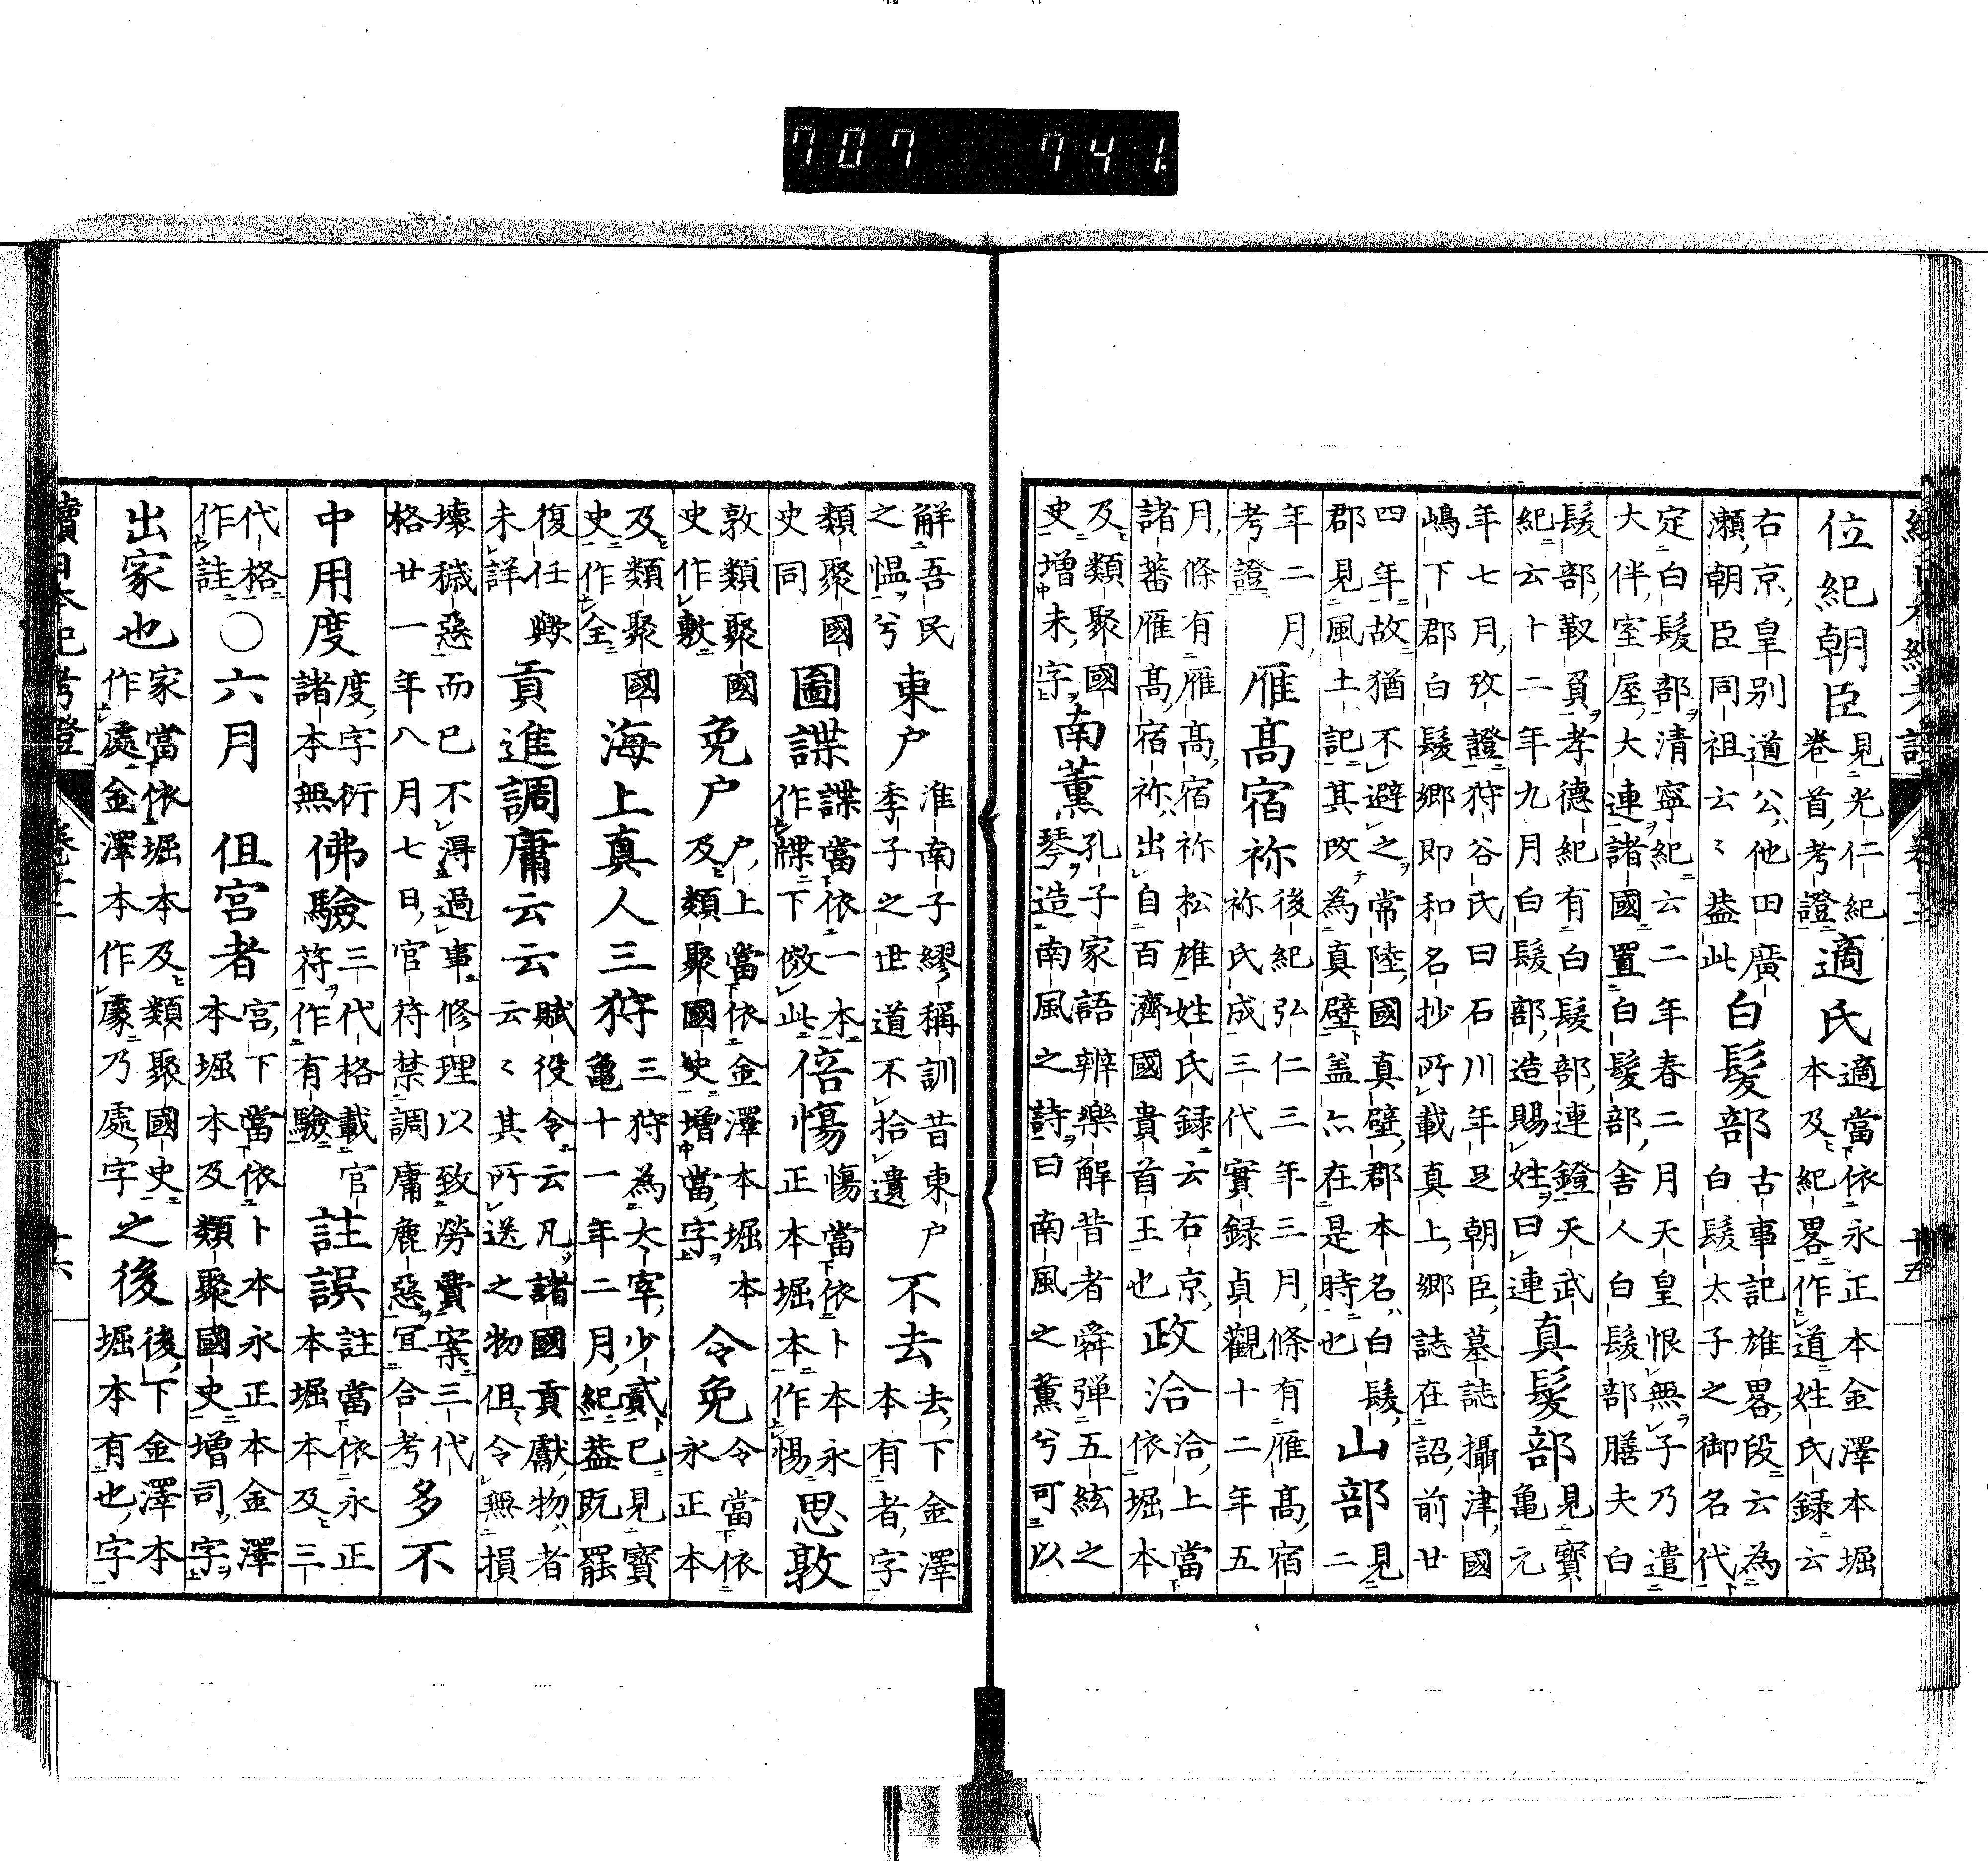 707 741.
位紀朝臣見光仁紀卷首考證適氏適當依永正本金澤本堀本及紀畧作道姓氏録云
右京皇別道公他田廣瀬朝臣同祖云〻葢此白髮部古事記雄畧段云為白髮太子之御名代
定白髮部清寧紀云二年春二月天皇恨無子乃遣大伴室屋大連諸國置白髮部舍人白髮部膳夫白
髮部靫負孝德紀有白髮部連鐙天武紀云十二年九月白髮部造賜姓曰連真髮部見寶亀元
年七月攷證狩谷氏曰石川年足朝臣墓誌攝津國嶋下郡白髮郷即和名抄所載真上郷誌在詔前廿
四年故猶不避之常陸國真壁郡本名白髮郡見風土記其改為真壁盖亦在是時也山部見二
年二月考證雁髙宿祢後紀弘仁三年三月條有雁髙宿祢氏成三代實録貞觀十二年五
月條有雁髙宿祢松雄姓氏録云右京諸蕃雁髙宿祢出自百濟國貴首王也政洽洽上當依堀本
及類聚國史増未字南薫孔子家語辨樂解昔者舜彈五絃之琴造南風之詩曰南風之薫兮可以
解吾民之愠兮東户淮南子繆稱訓昔東户季子之世道不拾遺不去去下金澤本有者字
類聚國史同圖諜諜當依一本作牒下傚此倍慯慯當依卜本永正本堀本作惕思敦
敦類聚國史作敷免户户上當依金澤本堀本及類聚國史増當字令免令當依永正本
及類聚國史作全海上真人三狩三狩為大宰少貳已見寶亀十一年二月紀葢既罷
復任歟未詳貢進調庸云云賦役令云凡諸國貢獻物者云〻其所送之物但令無損
壊穢惡而已不得過事修理以致勞費案三代格廿一年八月七日官符禁調庸麁惡宜合考多不
中用度度字衍諸本無佛驗三代格載官符作有驗註誤註當依永正本堀本及三
代格作詿〇六月　但宮者宮下當依卜本永正本金澤本堀本及類聚國史増司字
出家也家當依堀本及類聚國史作處金澤本作處乃處字之後後下金澤本堀本有也字
續日本紀考證　卷十二